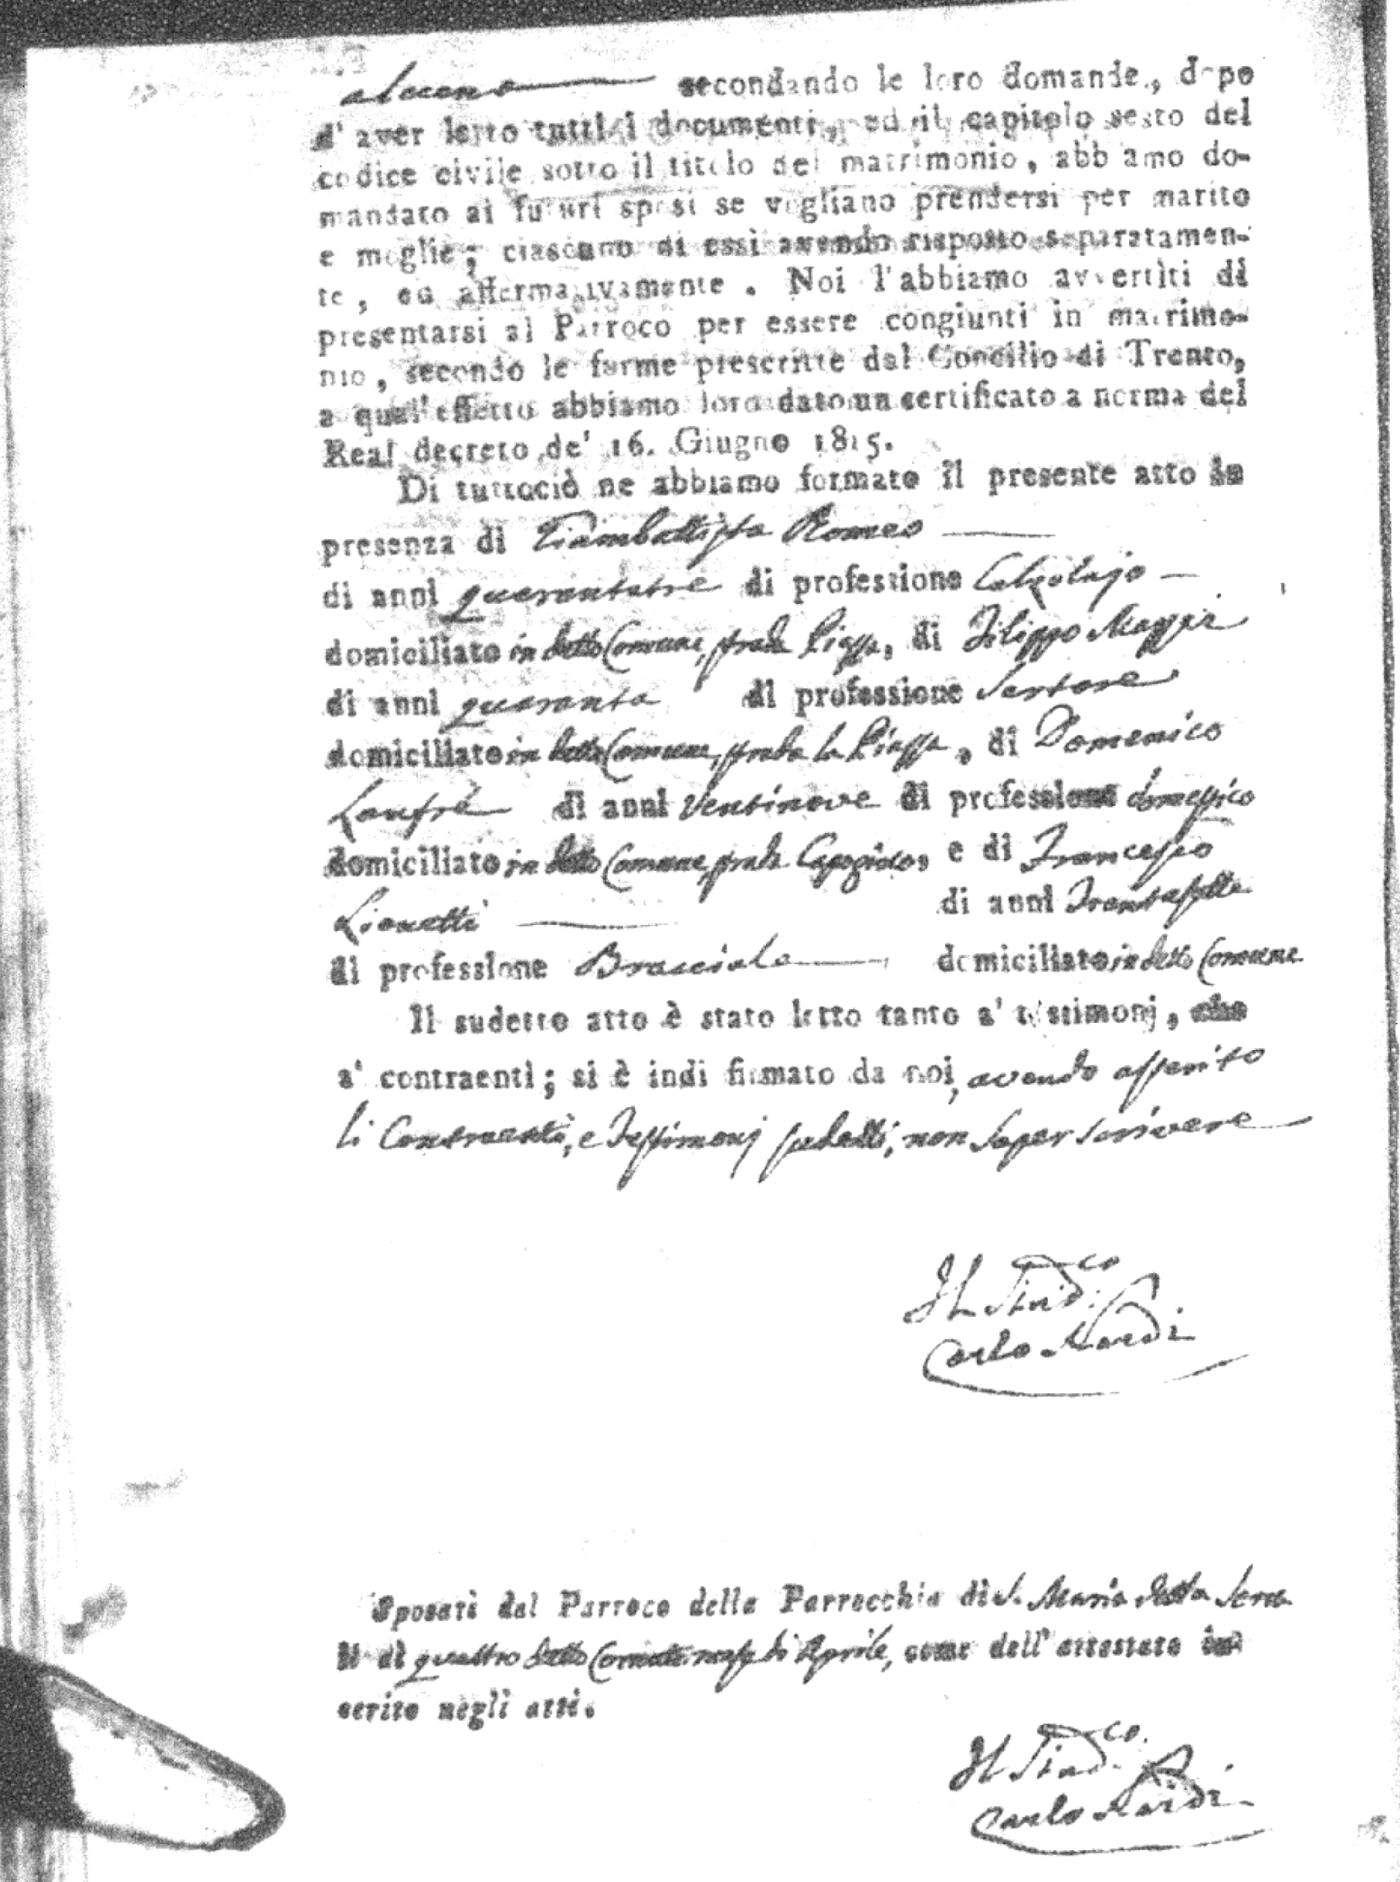 alcuno secondando le loro domande, dopo
d'aver letto tutti i documenti, ed il capitolo sesto del
codice civile sotto il titolo del matrimonio, abbiamo do-
mandato ai futuri sposi se vogliano prendersi per marito
e moglie; ciascuno di essi avendo risposto separatamen-
te, ed affermativamente. Noi l'abbiamo avvertiti di
presentarsi al Parroco per essere congiunti in matrimo-
nio, secondo le forme prescritte dal Concilio di Trento,
a qual'effetto abbiamo loro dato un certificato a norma del
Real decreto de' 16. Giugno 1815.
Di tuttociò ne abbiamo formato il presente atto in
presenza di Giambattista Romeo
di anni quarantatre di professione Calzolajo
domiciliato in detto Comune, strada Piazza, di Filippo
di anni quaranta di professione Sartore
domiciliato in detto Comune, strada la Piazza, di Domenico
Lanfrè di anni ventinove di professione domestico
domiciliato in detto Comune, strada e di Francesco
Lionetti di anni trentasette
di professione Bracciale domiciliato in detto Comune
Il sudetto atto è stato letto tanto a' testimonj, che
a' contraenti; si è indi firmato da noi, avendo asserito
li Contraenti, e Testimonj sudetti, non saper scrivere
Il Sind.co
Carlo Nardi
Sposati dal Parroco della Parrocchia di S. Maria della Serra
li dì quattro detto mese di Aprile, come dell'attestato in-
serito negli atti.
Il Sind.co
Carlo Nardi